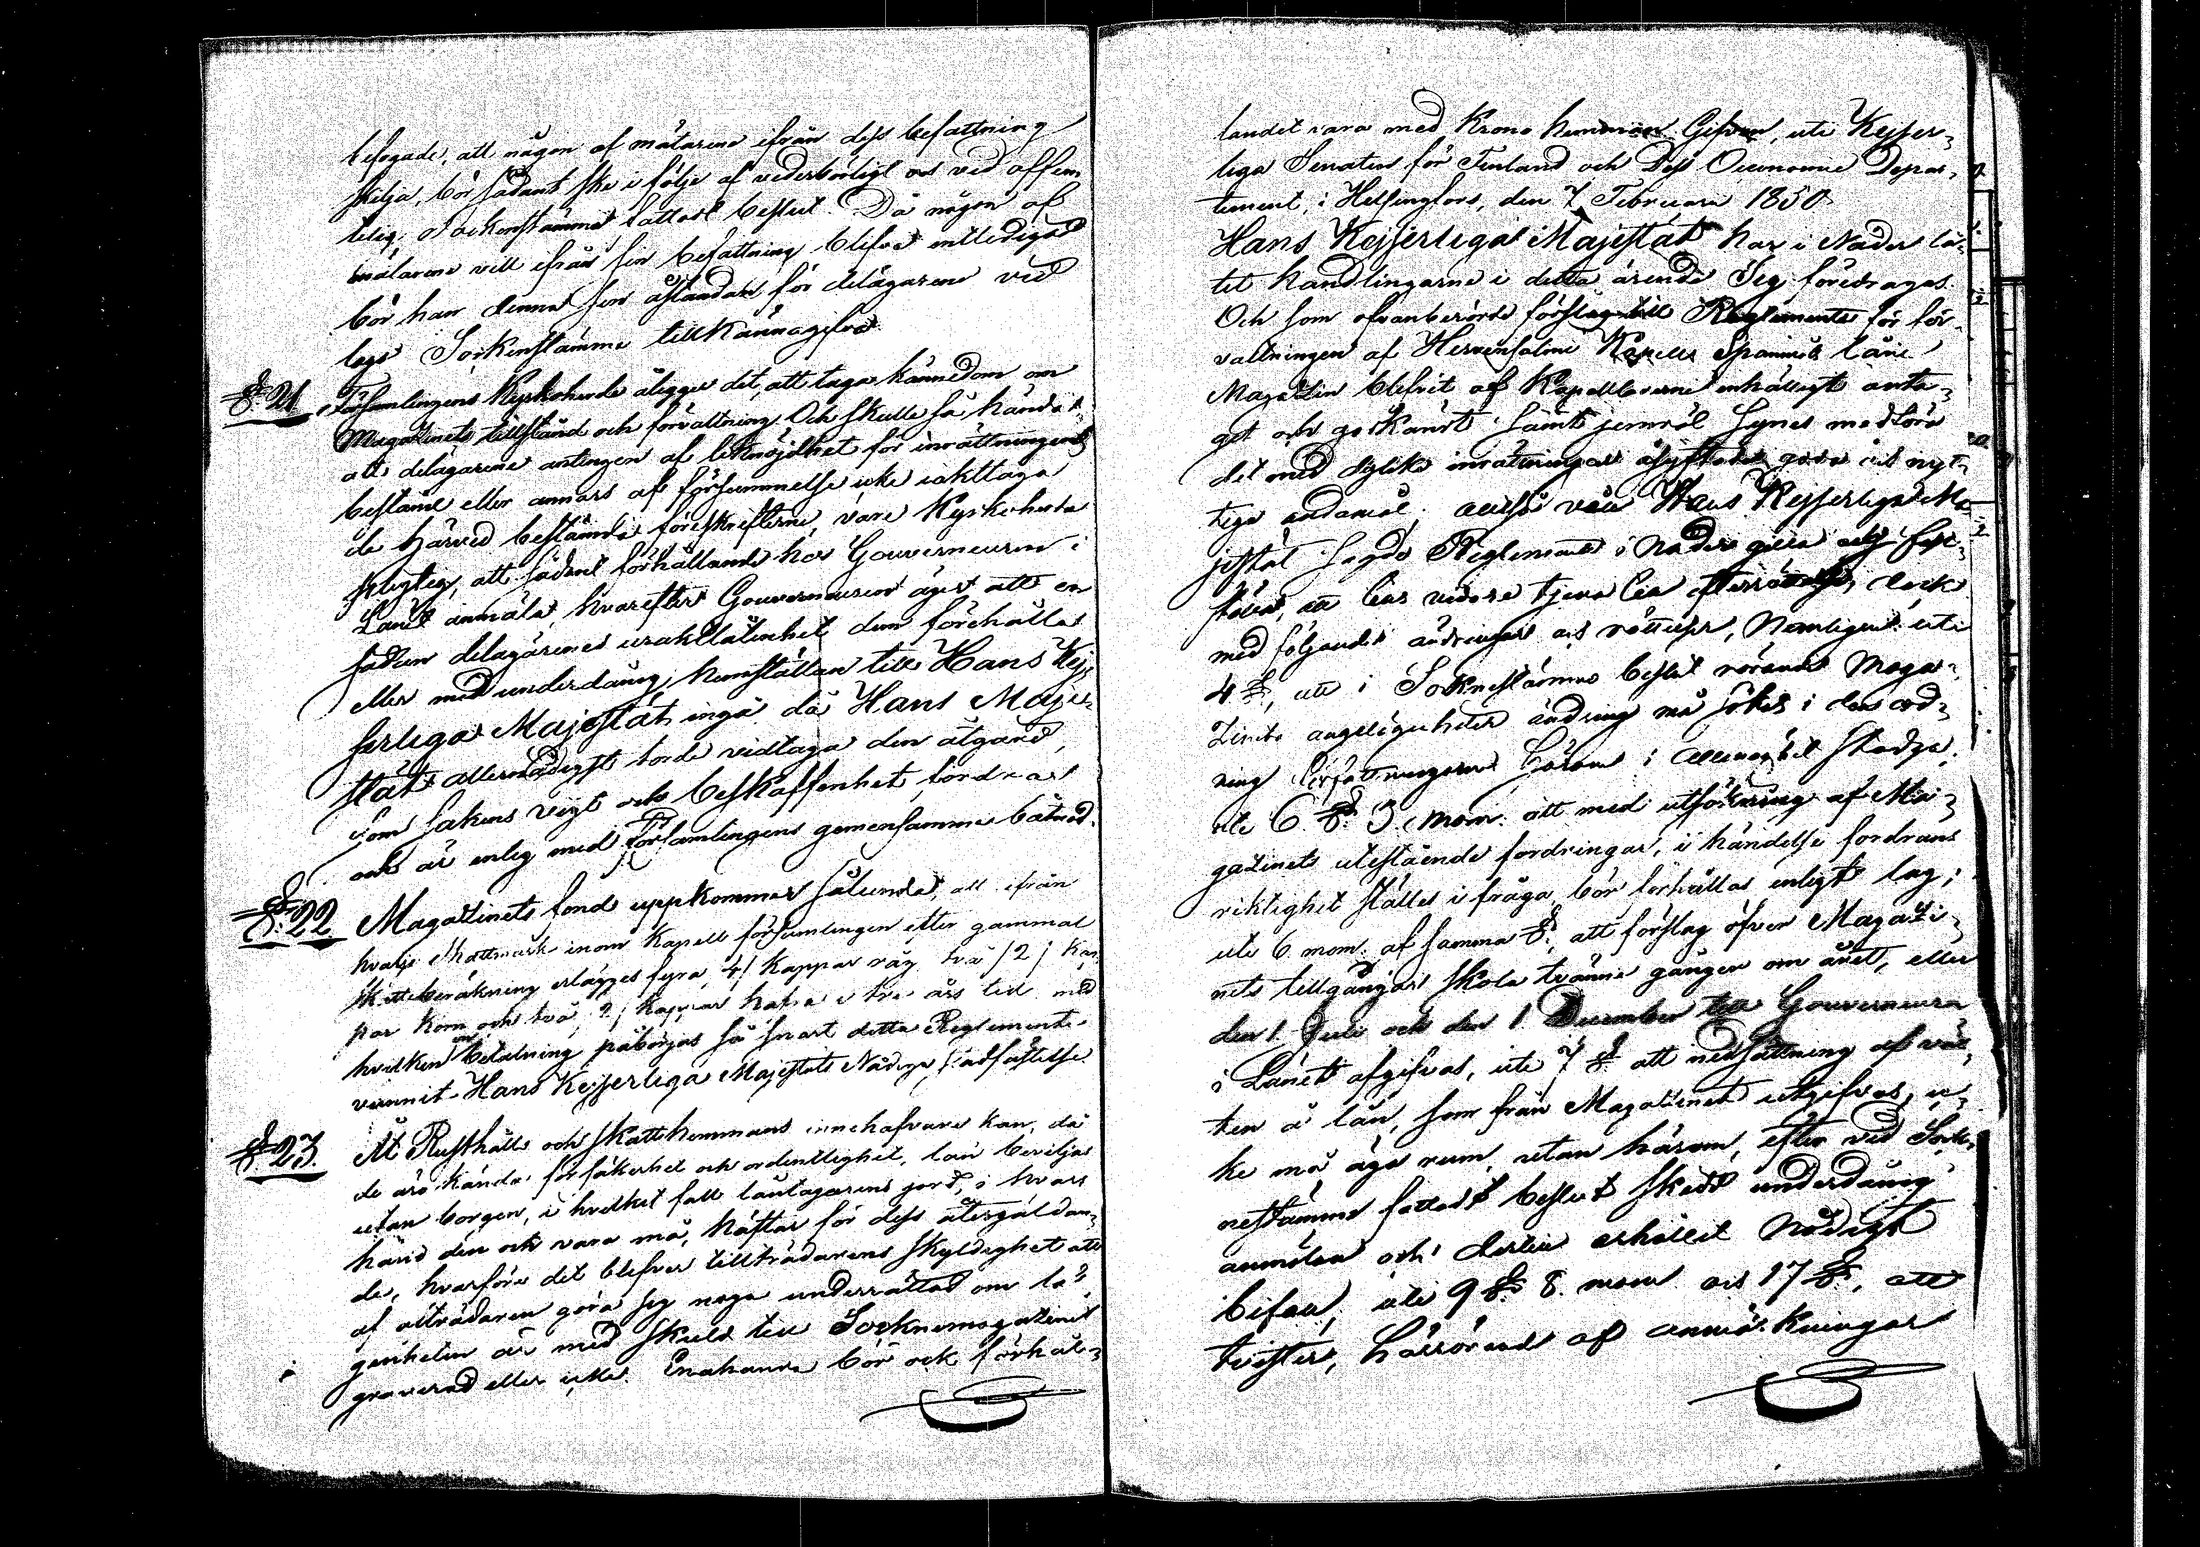 befogade, att någon af mätarene ifrån dess befattning
skilja, bör sådant ske i följe af vederbörligt och vid offen
telig Sockenstämma fattadt beslut. Då någon af
mätarene vill ifrån sin befattning blifva entledigad
bör han denna sin åstundan för delägarene vid
laga Sockenstämma tillkännagifva.
§. 21. Församlingens Kyrkoherde åligger det, att taga kännedom om
Magazinets tillstånd och förvaltning Och skulle så hända
att delägarene antingen af liknöjdhet för inrättningens
bestånd eller annars af försummelse icke iakttaga
de härvid bestämda föreskrifterne, vare Kyrkoherde
skyldig, att sådant förhållande hos Gouverneuren i
Länet anmäla, hvarefter Gouverneuren äger att en
sådan delägarenes uraktlåtenhet dem förehålla
eller med underdånig hemställan till Hans Kej-
serliga Majestät ingå då Hans Maje-
stät allernådigst torde vidtaga den åtgärd,
som sakens vigt och beskaffenhet fordrar
och är enlig med Församlingens gemensamma båtnad.
§. 22 Magazinets fond uppkommer sålunda, att ifrån
hvarje skattmark inom Kapell församlingen efter gammal
skatteberäkning erlägges fyra /4/ Kappar råg två /2/ Kap-
par korn och två /2/ kappar hafra i tre års tid med
hvilken betalning påbörjas så snart detta Reglemente
vunnit Hans Kejserliga Majestäts Nådiga stadfästelse
§. 23. Åt Rusthålls och Skattehemmans innehafvare kan, då
de äro kända för säkerhet och ordentlighet, lån beviljas
utan borgen, i hvilket fall låntagarens jord, i hvars
hand den ock vara må, häftar för dess återgäldan-
de, hvarföre det blifver tillträdarens skyldighet att
af afträdaren göra sig noga underrättad om lä-
genheten är med skuld till Socknemagazinet
graverad eller icke. Enahanda bör ock förhål-
landet vara med Krono hemman Gifven, uti Kejser-
liga Senaten för Finland och Dess Oeconomie Depar-
tement, i Helsingfors, den 7 Februari 1850.
Hans Kejserliga Majestät har i Nåder lå-
tit handlingarne i detta ärende Sig föredragas.
Och som ofvanberörde förslag till Reglemente för för-
valtningen af Hirvensalmi Kapells Spannmåls låne
Magazin blifvit af Kapellboerne enhälligt anta-
get och godkändt samt jemväl synes medföra
det med dylika inrättningar åsyftade goda och nyt-
tiga ändamål, altså vill Hans Kejserliga Ma-
jestät sagde Reglemente i Nåder gilla och fast-
ställa, att länder vederbörande till efterrättelse, dock
med följande ändringar och rättelser, Nemligen: uti
4 §., att i Sockenstämmo beslut rörande Maga-
zinets angelägenheter ändring må sökas i den ord-
ning författningarne härom i allmänhet stadga,
uti 6 §. 3. mom. att med utsökning af Ma-
gazinets utestående fordringar, i händelse fordrans
riktighet ställes i fråga bör förhållas enligt lag;
uti 6 mom. af samma §., att förslag öfver Magazi-
nets tillgångar skola tvänne gånger om året, eller
den 1 Juli och den 1 December till Gouverneuren
i Länet afgifvas, uti 7 §. att nedsättning af rän-
ten å lån, som från Magazinet utgifvas, ic-
ke må äga rum, utan härom, efter vid Sock-
nestämma fattadt beslut skedd underdånig
anmälan och dertill erhållit Nådigt
bifall, uti 9 §. 8. mom. och 17 §., att
tvister, härrörande af anmärkningar